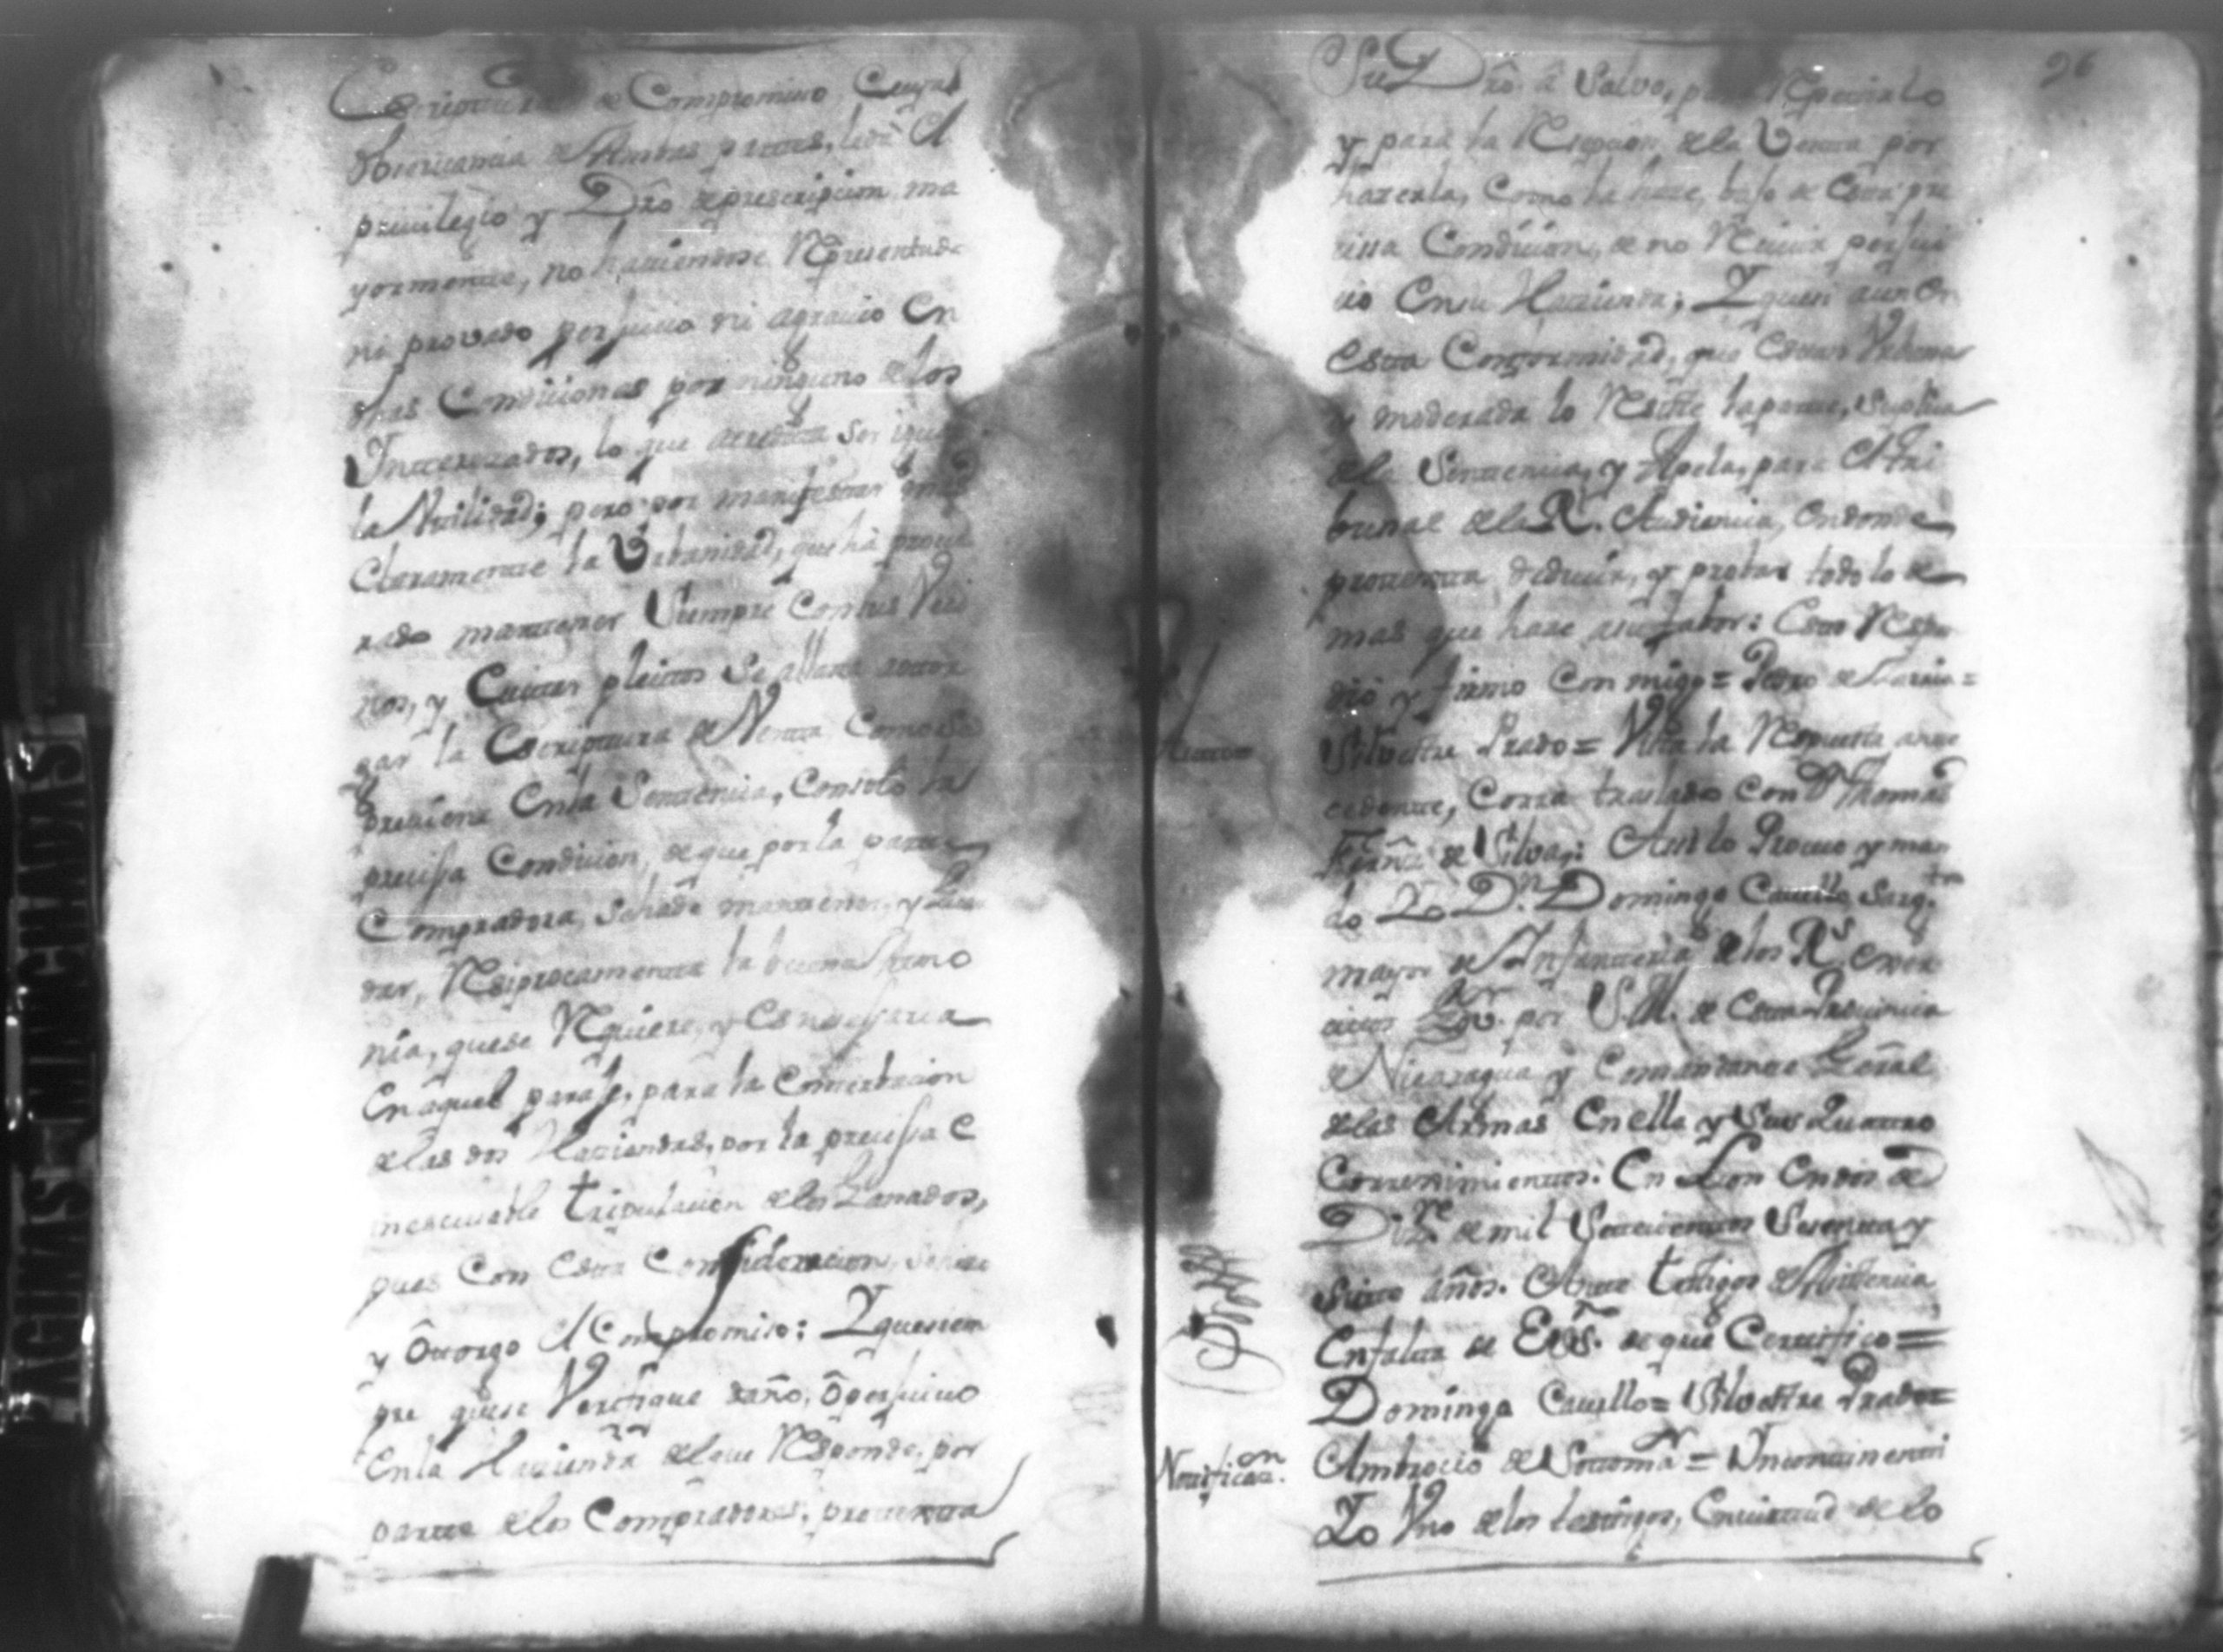 Escriptura de Compromiso, Cuya
obserbancia de Ambas partes, le dà el
privilegio y Dr̃o de prescripcion ma
yormente, no haviendose Representado
ni provado perjuicio ni agravio En
dhas Condiciones por ninguno de los
Interezados, lo que acredita ser
la Nulidad; pero por manifestar
Claramente la Vrbanidad, que ha procu
rado mantener Siempre Con sus Veci
nos, y Cuitar pleitos Se allana a otor
gar la Escriptura de Venta Como se
previene En la Sentencia, Con solo la
precissa Condicion, de que por la parte
Compradora, se hade mantener, y
dar, Reciprocamente la buena Armo
nia, que se Requiere, y Es necessaria
En aquel paraje, para la Conserbacion
de las dos Haciendas, por la precissa e
inescusable tripulacion de los Ganados,
pues Con Esta Consideracion, se hizo
y Otorgo el Compromiso: Y que siem
pre que se Verifique daño, ô perjuicio
En la Hacienda de la que Responde, por
parte de los Compradores, protexta
96
Su Dr̃o â Salvo, para Repetirlo
y para la Resicion de la Venta por
hazerla, Como la haze, bajo de Esta pre
cissa Condicion, de no Recivir perjui
cio En su Hacienda; Y quen aun En
Esta Conformidad, que Estas Vrbana
y moderada lo Resiste la parte, Suplica
de la Sentencia, y Apela, para El tri
bunal de la R. Audiencia, En donde
protexta deducir, y probar todo lo de
mas que haze a su fabor: Esto Respon
dió y firmo Con migo = Pedro de Garcia =
Silvestre Prado = Vista la Respuesta ante
cedente, Corra traslado Con Dn Thomas
de Silva: Assi lo Proveo y man
do Yo Dn. Domingo Cavello Sargto
mayor de Infanteria de los Rs. Exer
citos Govr. por S.M. de Esta Provincia
de Nicaragua y Comandante Gen̄al
de las Armas En ella y Sus Quatro
Correximientos: En Leon En dos de
Dizre de mil Settecientos Sesenta y
Siete años. Ante testigos de Asistencia
En falta de Ess̃. de que Certifico =
Domingo Cavello = Silvestre Prado =
Notificaon.
Ambrocio de Sotomar = Yncontinenti
Yo Vno de los testigos, En virtud de lo
PAGINAS MANCHADAS